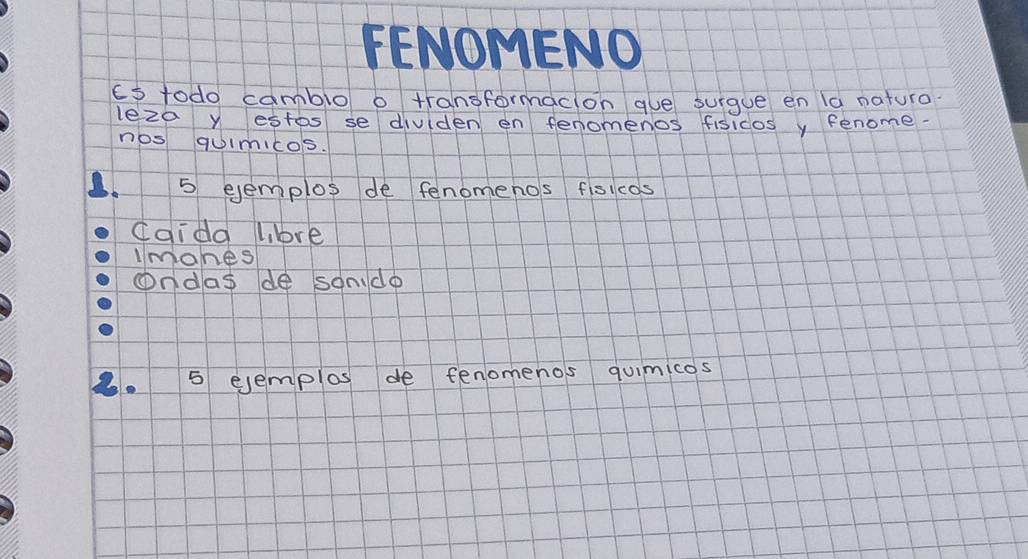 FENOMENO
Es todo cambio o transformacion que surgue en la natura-
leza y estos se dividen en fenomenos fisicos y fenome-
nos quimicos.
1. 5 ejemplos de fenomenos fisicos
• Caida libre
• Imanes
• Ondas de sonido
•
•
2. 5 ejemplos de fenomenos quimicos